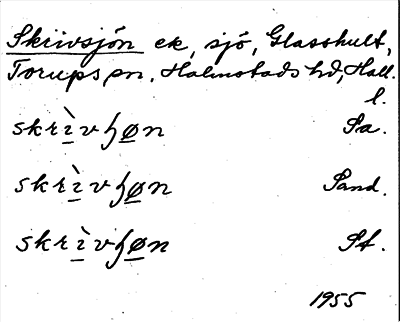 Skrivsjön ek, sjö, Glasshult,
Torups sn, Halmstads hd, Hall.
l.
skrìvʃøn Pa.
skrìvʃøn Sand.
skrìvʃøn St.
1955